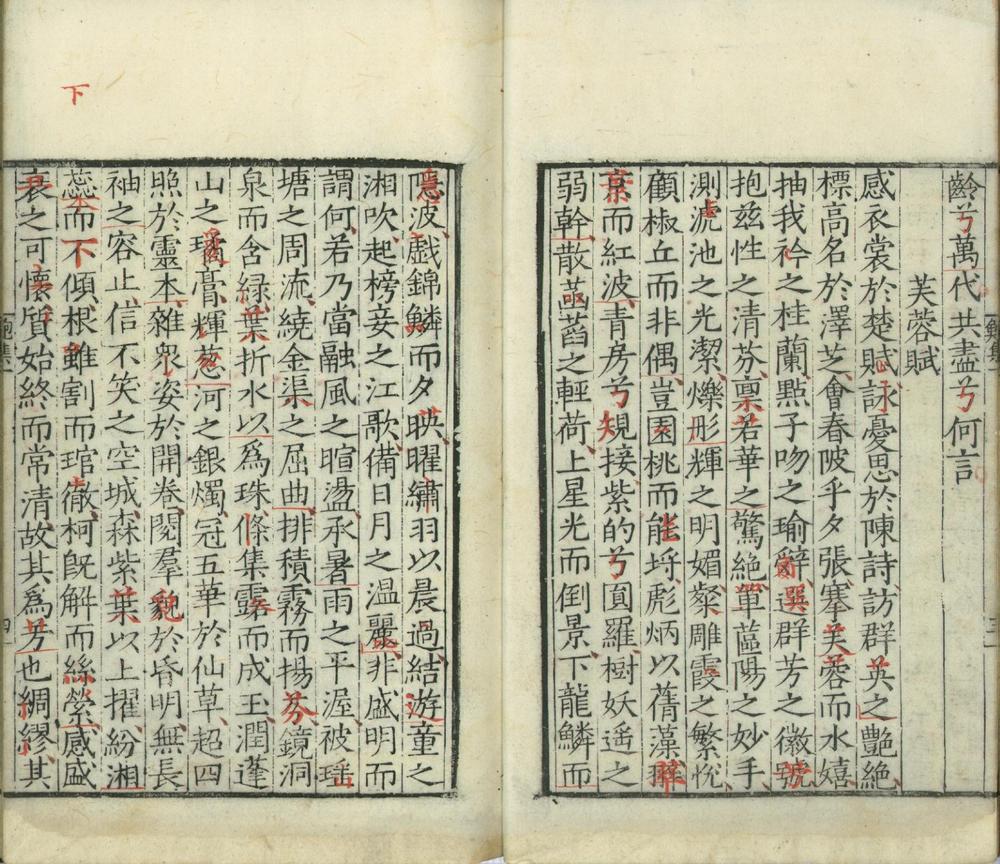 齡兮萬代共盡兮何言
芙蓉賦
感衣裳於楚賦詠憂思於陳詩訪群英之艶絶
標高名於澤芝會春陂乎夕張搴芙蓉而水嬉
抽我衿之桂蘭點子吻之瑜辭選群芳之徽號
抱兹性之清芬稟若華之驚絶單蘁陽之妙手
測淲池之光潔爍彤輝之明媚粲雕霞之繁悅
顧椒丘而非偶豈園桃而能埓彪炳以蒨藻
葉而紅波青房兮規接紫的兮圓羅樹妖遥之
弱幹散菡萏之輕荷上星光而倒景下龍鱗而
隱波戲錦鱗而夕映曜繡羽以晨過結遊童之
湘吹起榜妾之江歌備日月之温麗非盛明而
謂何若乃當融風之暄盪承暑雨之平渥被瑶
塘之周流繞金渠之屈曲排積霧而揚芬鏡洞
泉而含緑葉折水以爲珠條集露而成玉潤蓬
山之瓊膏輝葱河之銀燭冠五華於仙草超四
照於靈本雜衆姿於開卷閲羣貌於昏明無長
袖之容止信不笑之空城森紫葉以上擢紛湘
蕊而不傾根雖割而琯徹柯既解而絲縈感盛
衰之可懷質始終而常清故其爲芳也綢繆其
下